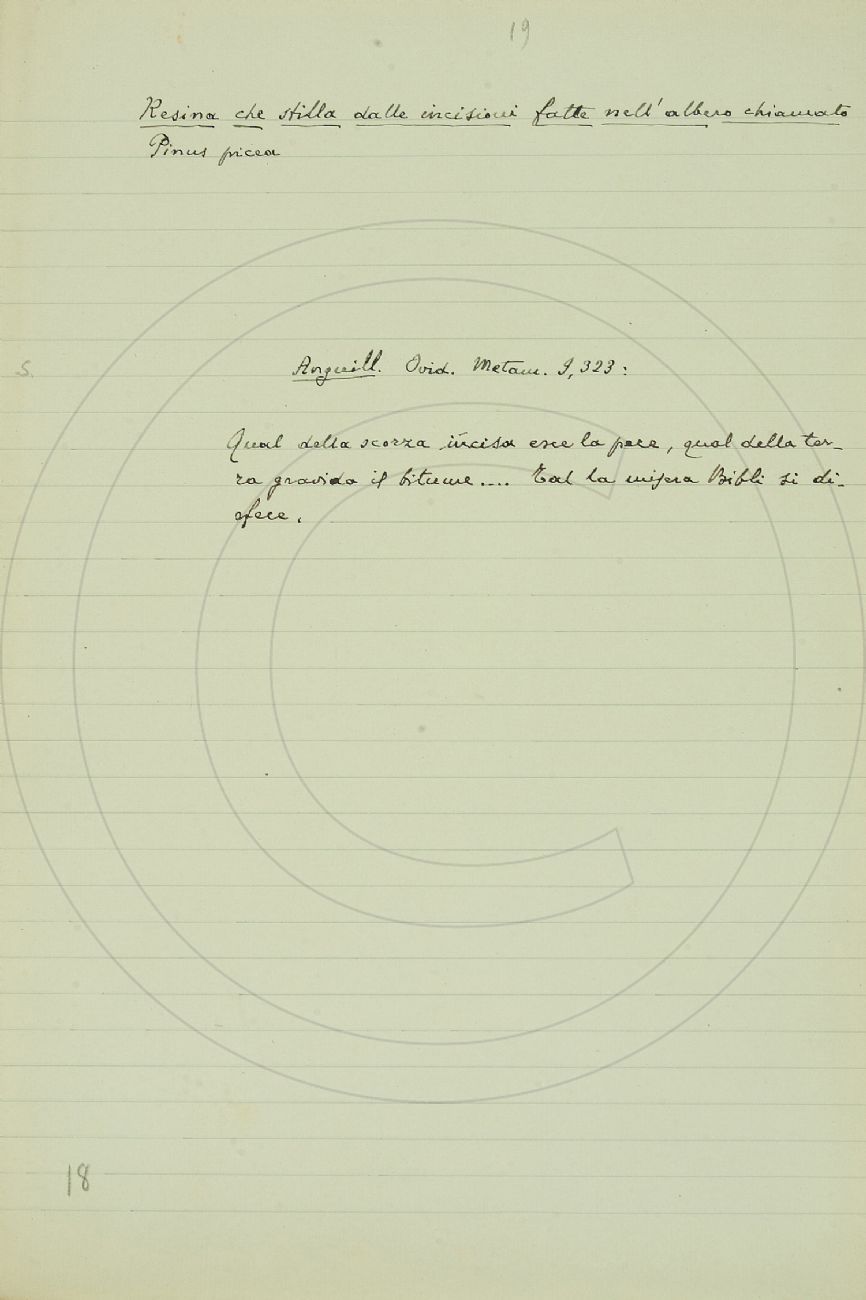 19
Resina che stilla dalle incisioni fatte nell' albero chiamato
Pinus picea
S.
Anguill. Ovid. Metam. 9, 323:
Qual della scorza incisa esce la pece, qual della ter-
ra gravida il bitume.... Tal la misera Bibli si di-
sfece.
18